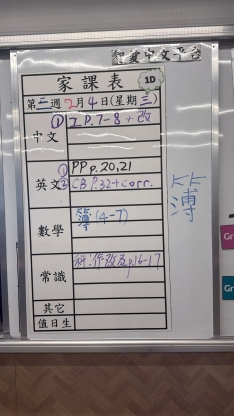 智愛中文平台
家課表 1D
第二週 2月4日(星期三)
中文 ① 工P.7-8+改
英文 ① PP p.20,21
② CB P.32+corr.
數學 簿(4-7)
常識 科:作改及p.16-17
其它
值日生
簿
Gr